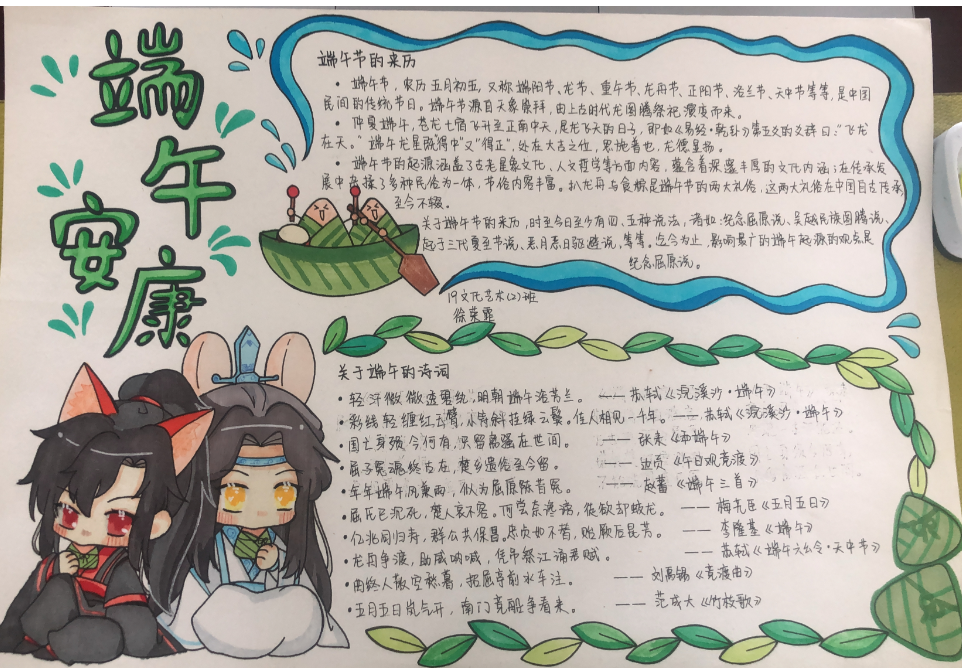 端午安康
端午节的来历
• 端午节，农历五月初五，又称端阳节、龙节、重午节、龙舟节、正阳节、浴兰节、天中节等等，是中国
民间的传统节日。端午节源自天象崇拜，由上古时代龙图腾祭祀演变而来。
• 仲夏端午，苍龙七宿飞升至正南中天，是龙飞天的日子，即如《易经·乾卦》第五爻的爻辞曰："飞龙
在天。"端午龙星既"得中"又"得正"，处在大吉之位，
• 端午节的起源涵盖了古老星象文化、人文哲学等方面内容，蕴含着深邃丰厚的文化内涵；在传承发
展中杂揉了多种民俗为一体，节俗内容丰富。扒龙舟与食粽是端午节的两大礼俗，这两大礼俗在中国自古传承，
至今不辍。
关于端午节的来历，时至今日至少有四、五种说法，诸如：纪念屈原说、吴越民族图腾说、
起于三代夏至节说、恶月恶日驱避说，等等。迄今为止，影响最广的端午起源的观点是
纪念屈原说。
19文化艺术(2)班
徐荣霏
关于端午的诗词
• 轻汗微微透碧纨，明朝端午浴芳兰。 —— 苏轼《浣溪沙·端午》
• 彩线轻缠红玉臂，小符斜挂绿云鬟。佳人相见一千年。 —— 苏轼《浣溪沙·端午》
• 国亡身殒今何有，只留离骚在世间。 —— 张耒《和端午》
• 屈子冤魂终古在，楚乡遗俗至今留。 —— 边贡《午日观竞渡》
• 年年端午风兼雨，似为屈原陈昔冤。 —— 赵蕃《端午三首》
• 屈氏已沉死，楚人哀不容。何尝奈谗谤，徒欲却蛟龙。 —— 梅尧臣《五月五日》
• 亿兆同归寿，群公共保昌。忠贞如不替，贻厥后昆芳。 —— 李隆基《端午》
• 龙舟争渡，助威呐喊，凭吊祭江诵君赋。 —— 苏轼《六幺令·天中节》
• 曲终人散空愁暮，招屈亭前水东注。 —— 刘禹锡《竞渡曲》
• 五月五日岚气开，南门竞船争看来。 —— 范成大《竹枝歌》